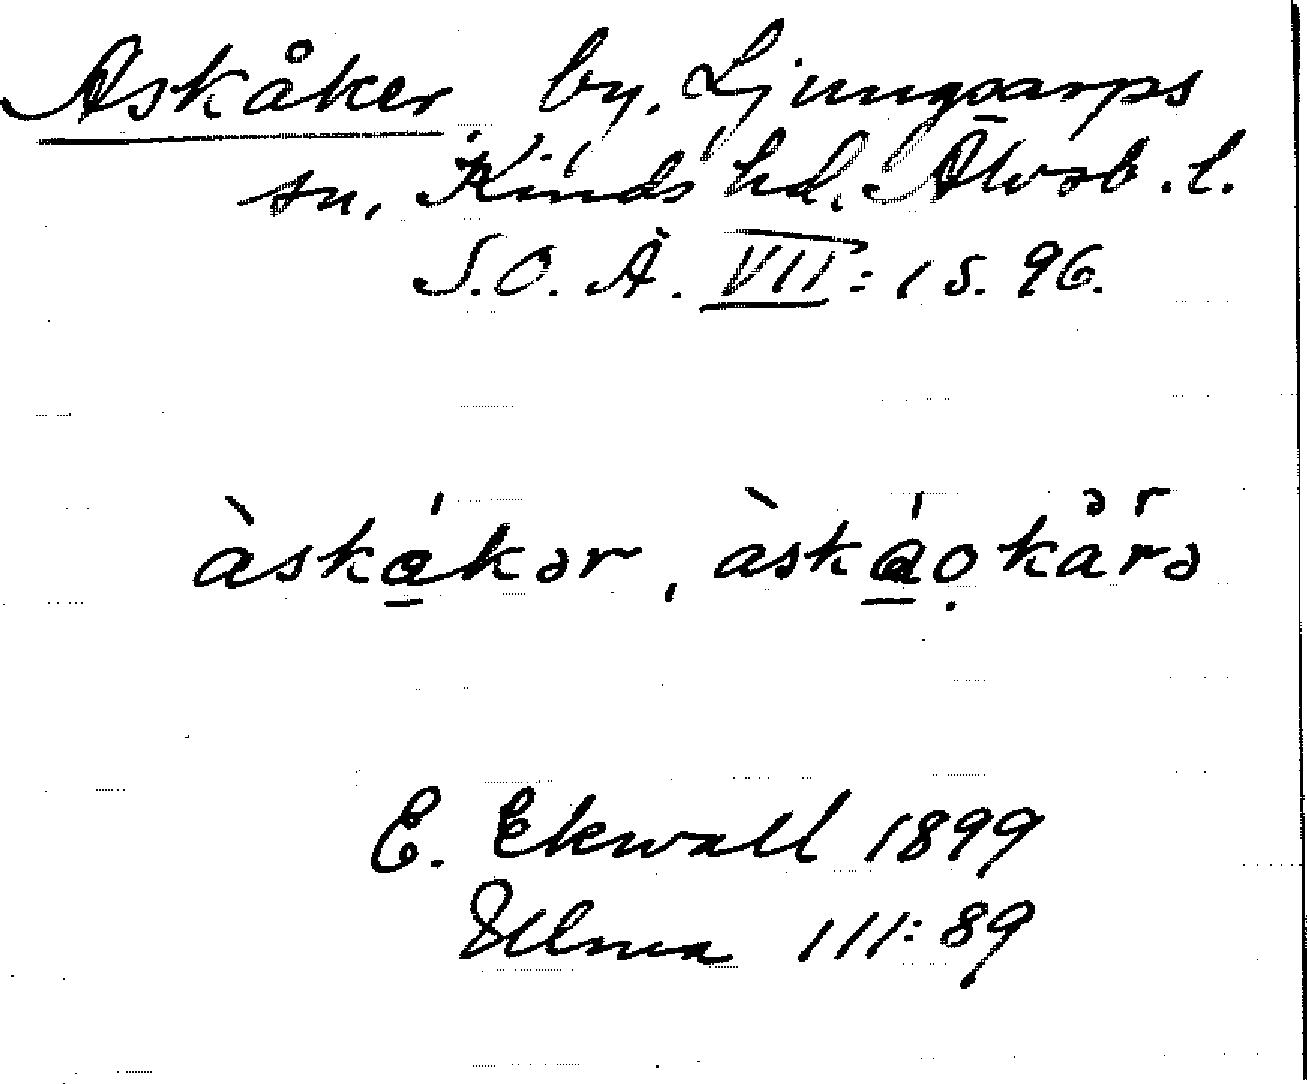 Askåker by. Ljungsarps
sn. Kinds hd. Älvsb. l.
S.O.Ä. VII: 1 s. 96.
àskákər, àskáọkårə
ər
E. Ekwall 1899
Ulma 111:89